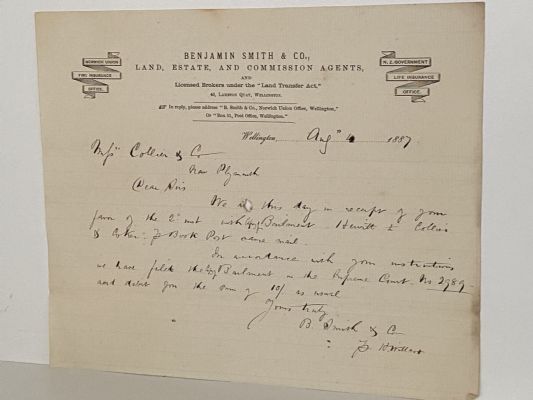 BENJAMIN SMITH & CO.,
LAND, ESTATE, AND COMMISSION AGENTS,
AND
Licensed Brokers under the "Land Transfer Act,"
NORWICH UNION
FIRE INSURANCE
OFFICE.
N. Z. GOVERNMENT
LIFE INSURANCE
OFFICE.
42, LAMBTON QUAY, WELLINGTON.
In reply, please address "B. Smith & Co., Norwich Union Office, Wellington,"
Or "Box 31, Post Office, Wellington."
Wellington, Aug 4 1887
Messrs Collier & Co
New Plymouth
Dear Sirs
We are this day in receipt of your
favor of the 2nd inst with Bailment Hewitt to Collier
& Book Post same mail.
In accordance with your instructions
we have filed the Bailment in the Supreme Court No 2989
and debit you the sum of 10/- as usual
Yours truly
B. Smith & Co